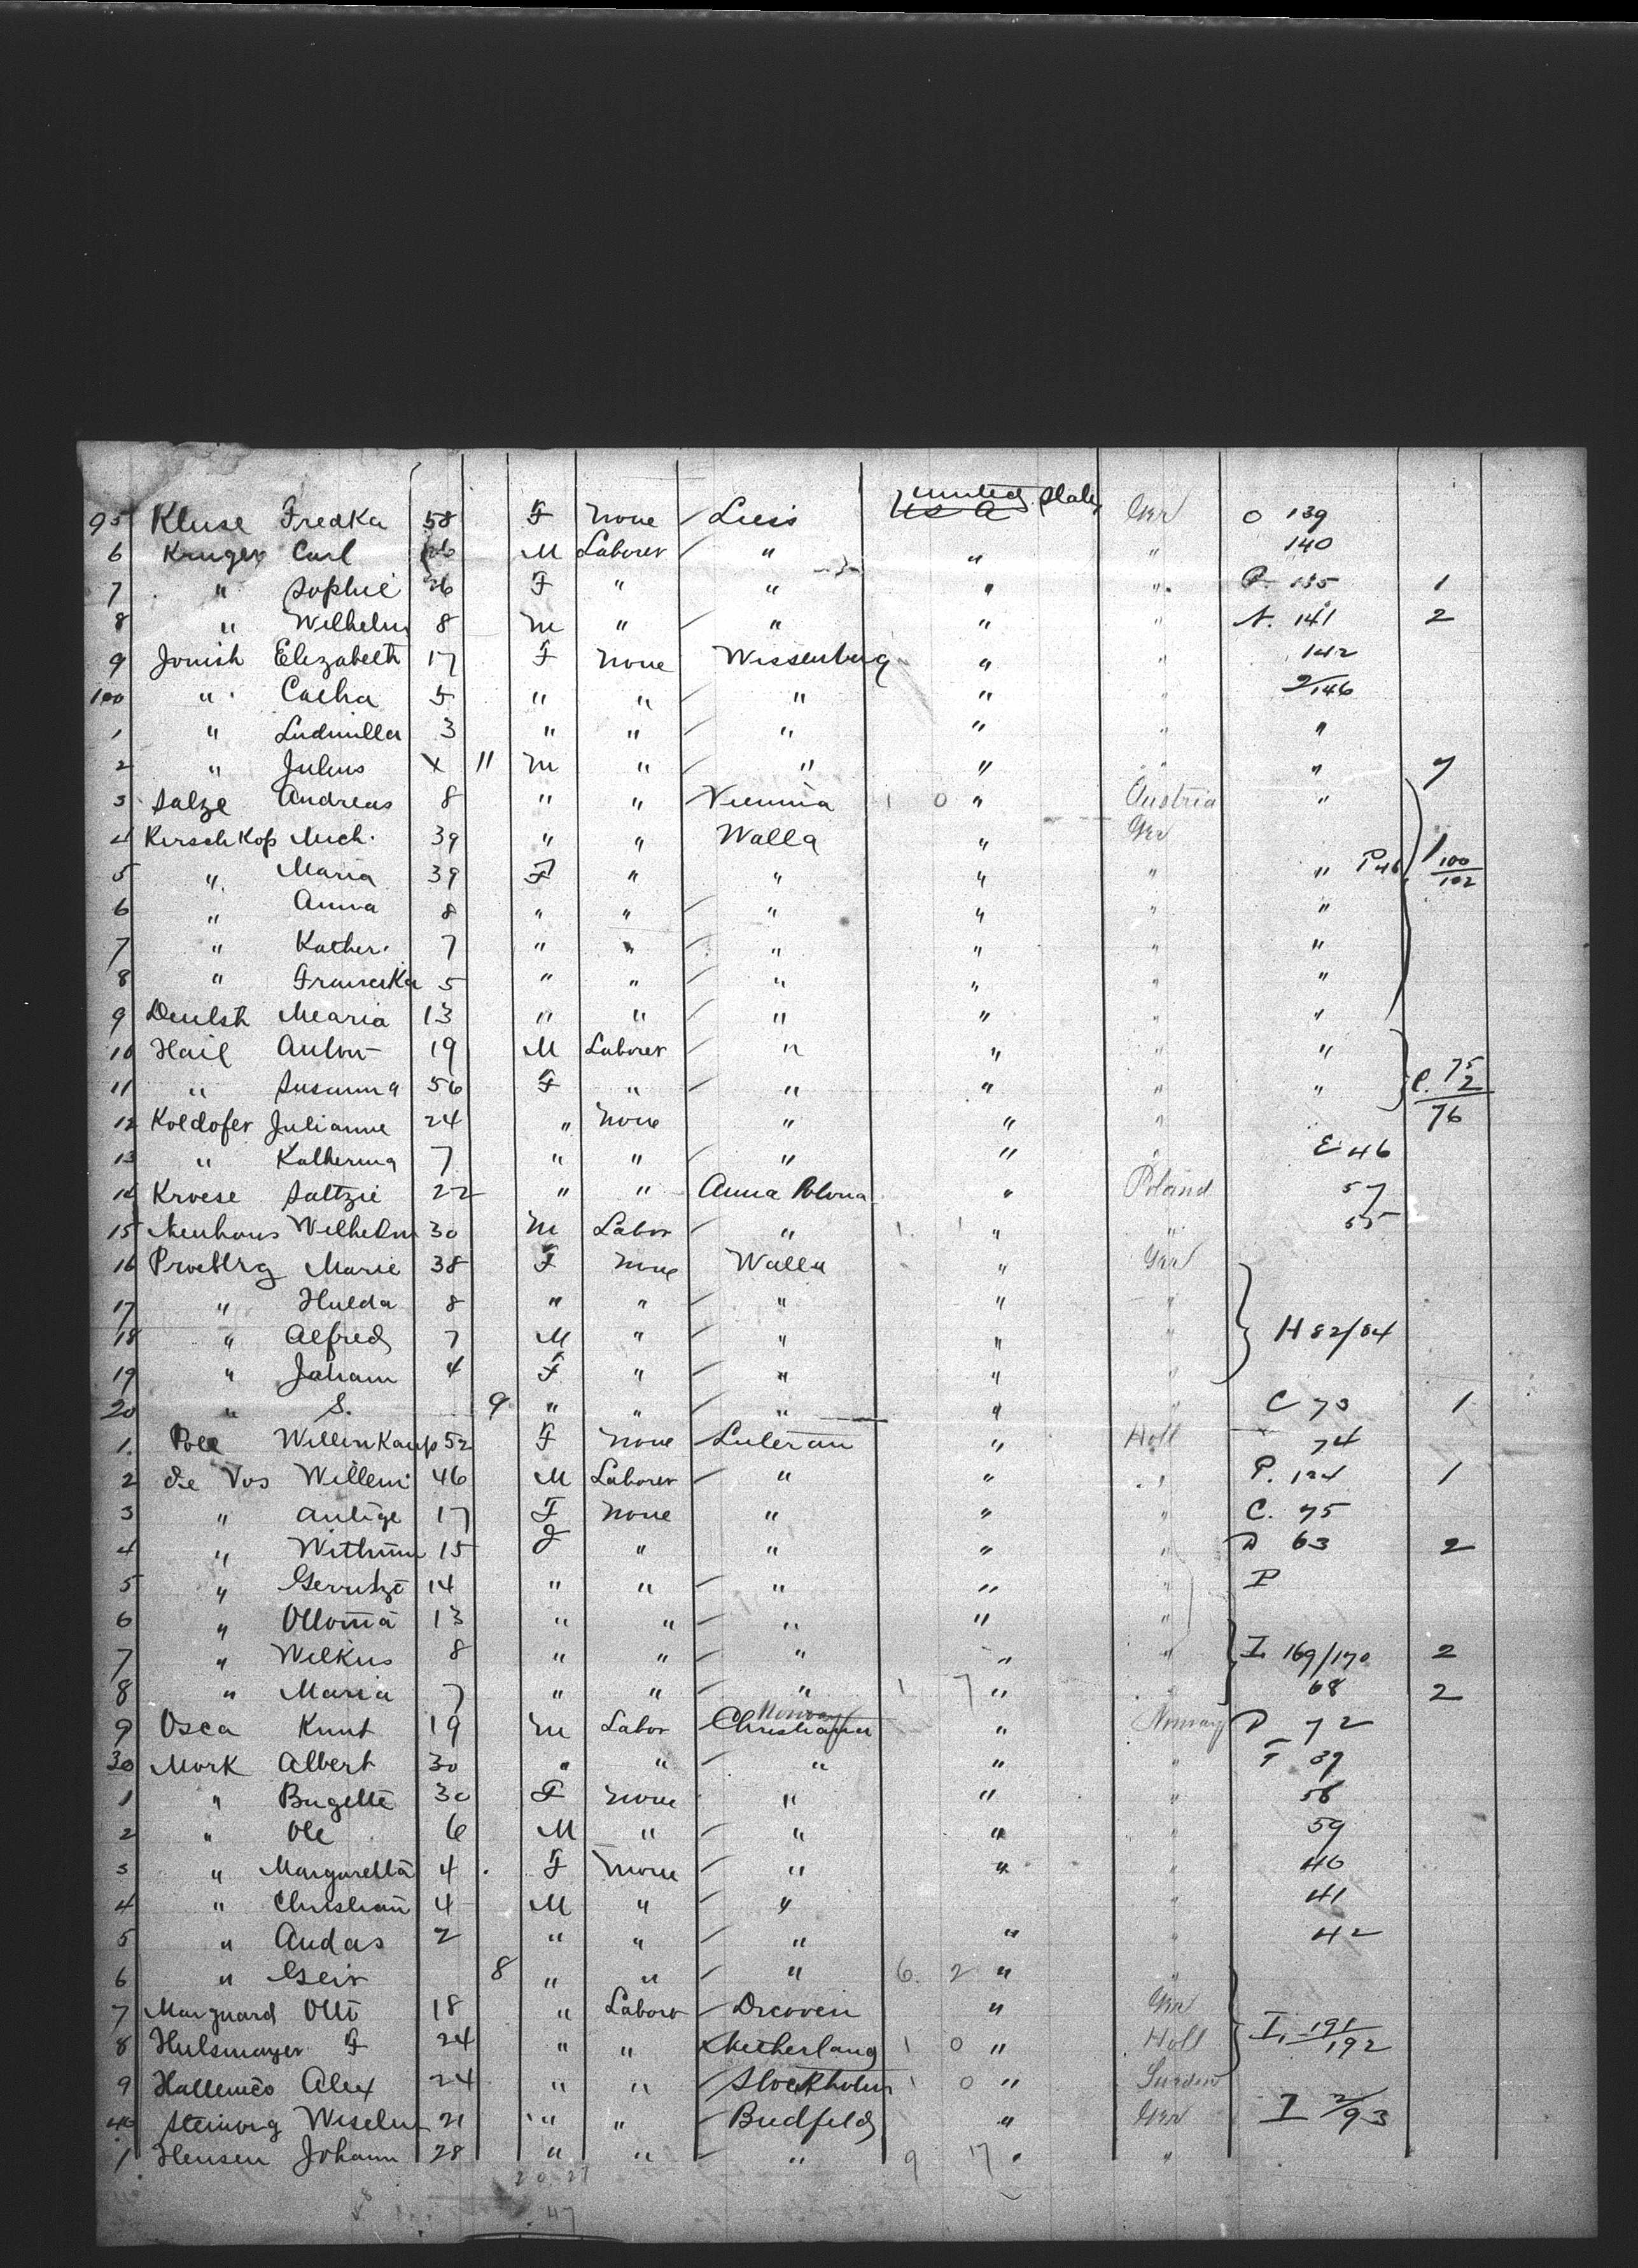 95 Kluse Fredka 58 F None Liess United States U S A Ger O 139
6 Kruger Carl M Laborer " " " 140
7 " Sophie 26 F " " " " 135 1
8 " Wilhelm 8 M " " " " N. 141 2
9 Jonish Elizabeth 17 F None Wissenburg " " 142
100 " 5 " " " " 2/146
1 " Ludmilla 3 " " " " " "
2 " Julius X 11 M " " " " " 7
3 Salze Andreas 8 " " Viennia 1 0 " Austria "
4 Kirschkop Mich. 39 " " Walla " Ger
5 " Maria 39 F " " " " " P46 1 100/102
6 " Anna 8 " " " " " "
7 " Kather. 7 " " " " " "
8 " Franciska 5 " " " " " "
9 Deulsh Mearia 13 " " " " " "
10 Hail Anton 19 M Laborer " " " "
11 " Susanna 56 F " " " " " C. 75 2/76
12 Koldofer Julianne 24 " None " " "
13 " Katherina 7 " " " " " E 46
14 Kroese Saltzie 22 " " Anna Polona " Poland 57
15 Neuhaus Wilhelm 30 M Labor " 1 1 " " 55
16 Marie 38 F None Walla " Ger
17 " Hulda 8 " " " " "
18 " Alfred 7 M " " " " H 82/84
19 " Joham 4 F " " " "
20 " S. 9 " " " " " C 73 1
1. Poll Willinkamp 52 F None Luteran " Holl 74
2 de Vos Willem 46 M Laborer " " " P. 124 1
3 " Antige 17 F None " " " C. 75
4 " 15 F " " " " D 63 2
5 " Gerritze 14 " " " " P
6 " Olloma 13 " " " " "
7 " Wilkus 8 " " " " " I 169/170 2
8 " Maria 7 " " " 1 7 " " 68 2
9 Osca Knut 19 M Labor Christiana Norway " Norway D 72
30 Mork Albert 30 " " " " " T 39
1 " Bugette 30 F None " " " 58
2 " Ole 6 M " " " " 59
3 " Margaretta 4 F None " " " 40
4 " Christian 4 M " " " 41
5 " Andas 2 " " " " " 42
6 " Geir 8 " " " 6 2 " "
7 Marquard Otto 18 " Labor Dreoven " Ger
8 Hulsmayer F 24 " " Netherland 1 0 " Holl I, 191/192
9 Hallenco Alex 24 " " Stockholm 1 0 " Sweden
40 Steinorg 21 " " Budfeld " Ger I 2/93
1 Hensen Johann 28 " " " 9 17 " "
20.27
47